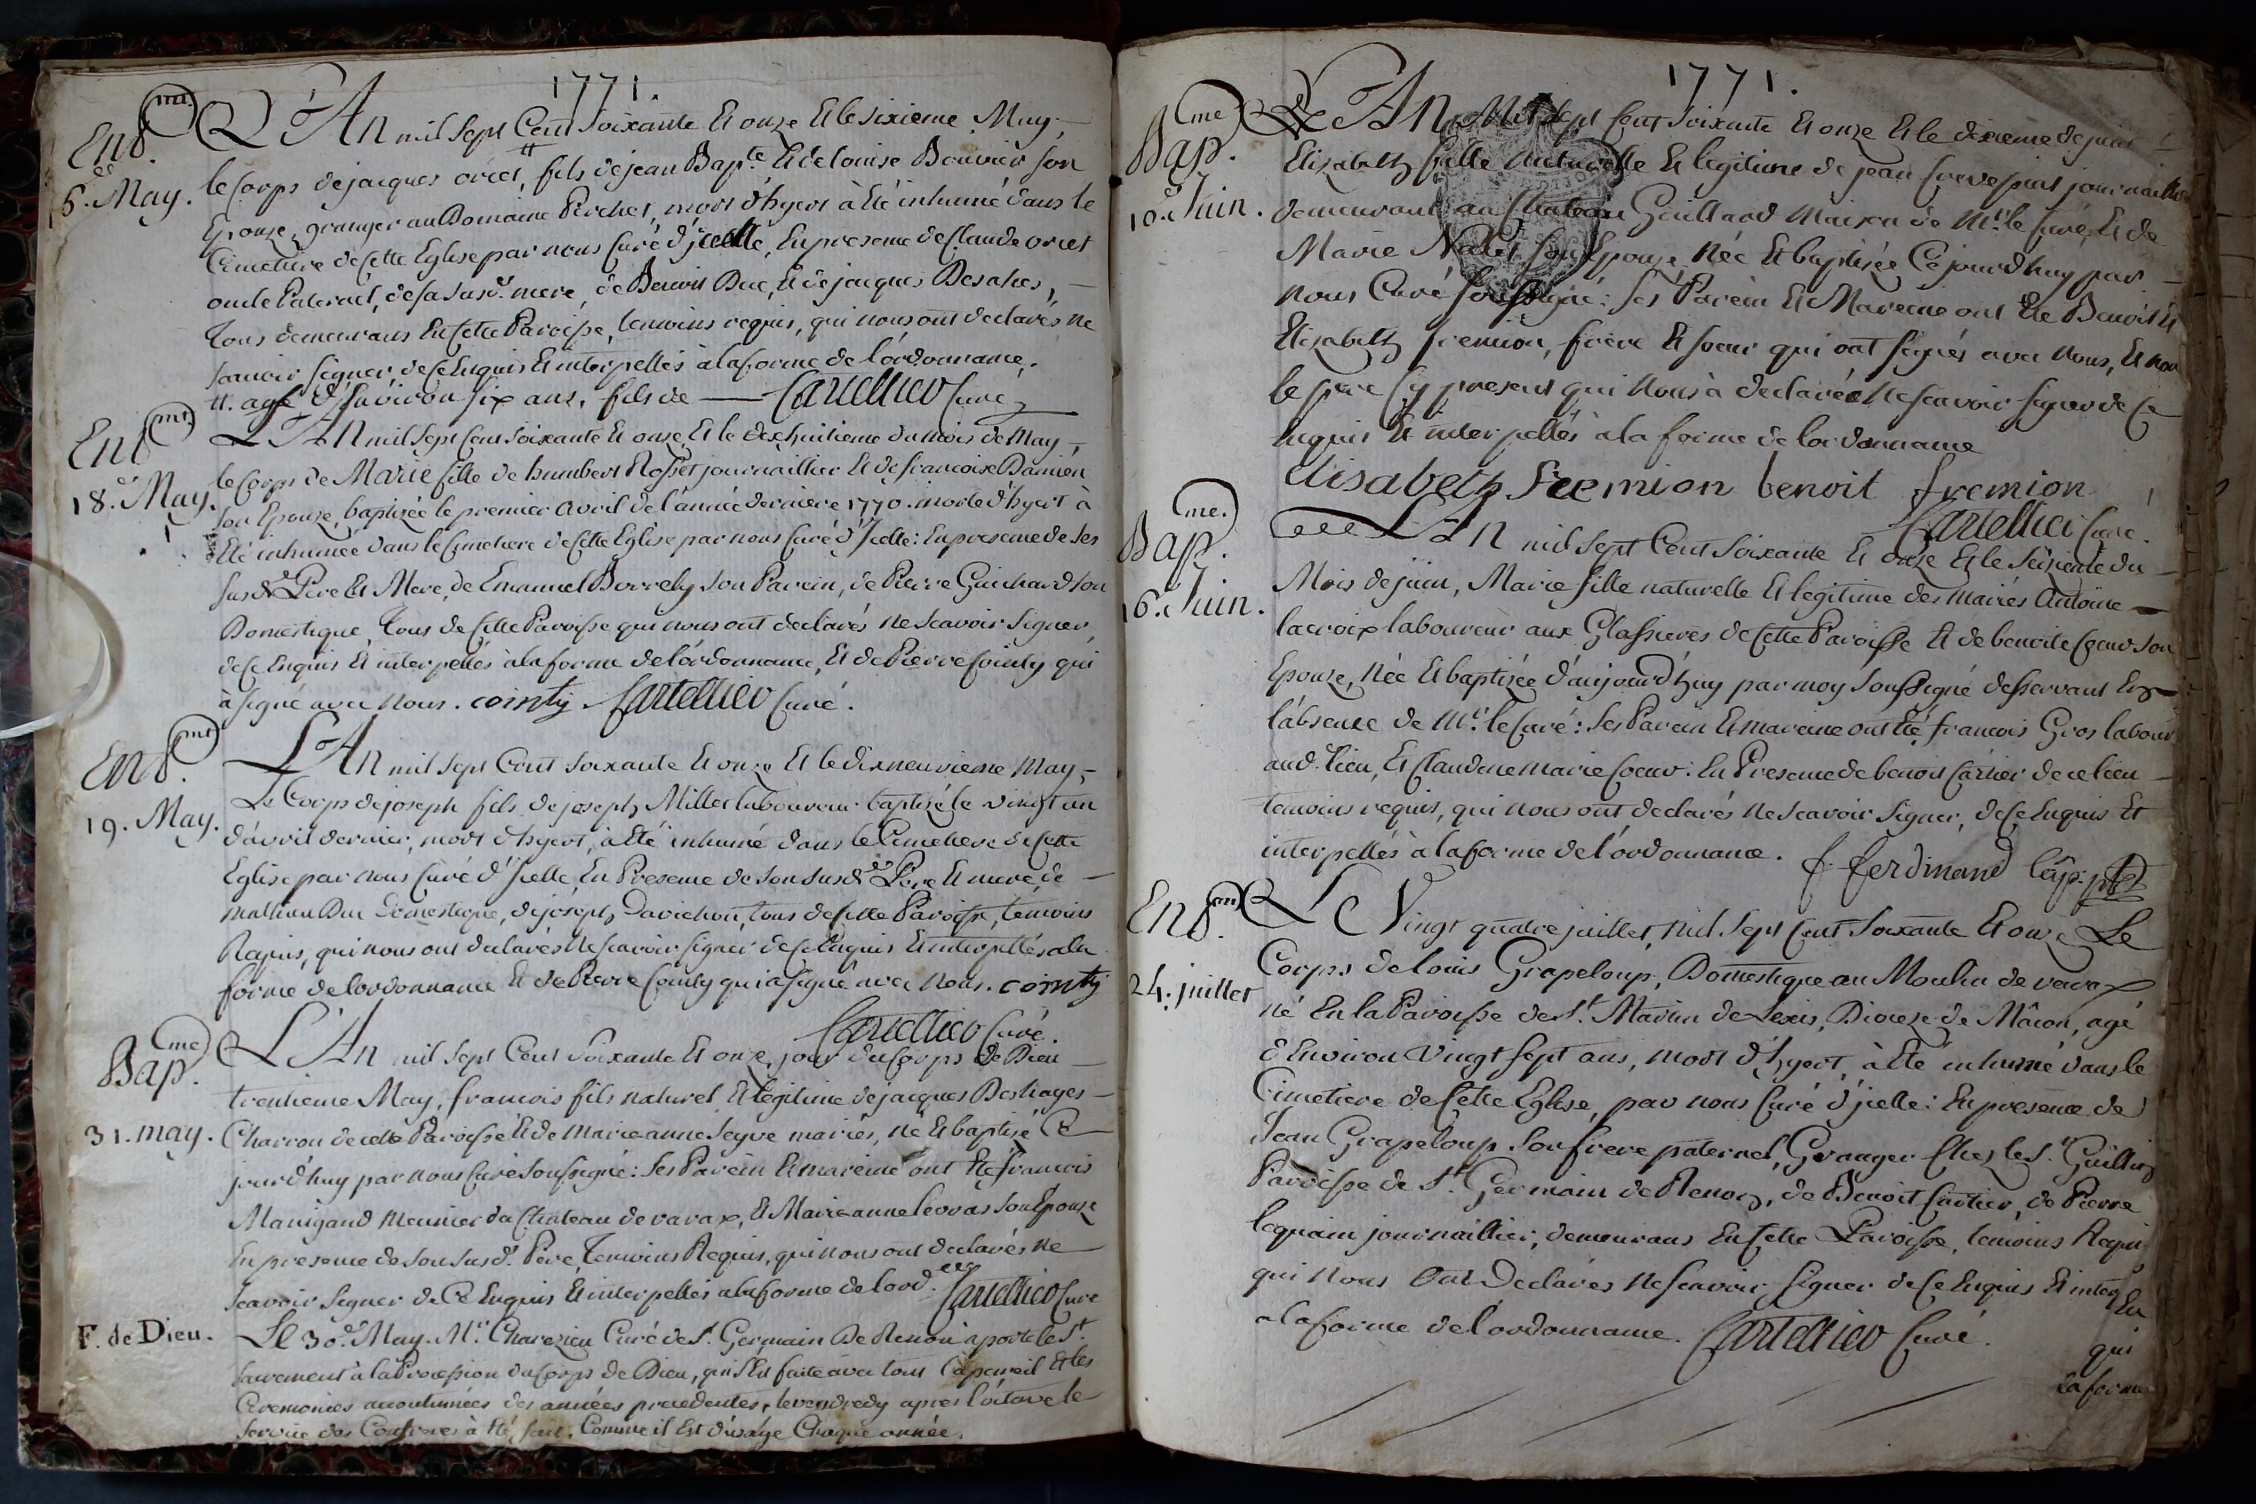 1771.
Ent.mt L'An mil sept Cent soixante Et onze Et le sixieme May,
6.e May. le Corps de jacques orcet, # fils de jean Bap.te Et de louise Bouvier son
Epouze, granger au Domaine Perchet, mort d'hyert à Eté inhumé dans le
Cimetiere de Cette Eglise par nous Curé d'jcelle, En presence de Claude orcet
oncle Paternel, de sa susd.e mere, de Benoit Duc, Et de jacques Desahes,
Tous demeurans En Cette Paroisse, temoins requis, qui nous ont declarés ne
scavoir signer, de Ce Enquis Et interpellés à la forme de l'ordonnance.
#. agé d'Environ six ans, fils de — Cartellier Curé
Ent.mt L'An mil sept Cent soixante Et onze Et le dixhuitieme du mois de May,
18.e May. le Corps de Marie fille de humbert Rosset journaillier Et de francoise Damien
son Epouze, baptizée le premier avril de l'année derniere 1770. morte d'hyert à
Eté inhumée dans le Cimetiere de Cette Eglise par nous Curé d'Jcelle: En presence de ses
susd.s Pere Et Mere, de Emanuel Borrely son Parein, de Pierre Guichard son
Domestique, Tous de Cette Paroisse qui nous ont declarés ne scavoir signer
de Ce Enquis Et interpellés à la forme de l'ordonnance, Et de Pierre Cointy qui
à signé avec nous. cointy Cartellier Curé.
Ent.mt L'An mil sept Cent soixante Et onze Et le dixneuvieme May,
19. May. Le Corps de joseph fils de joseph Millet laboureur baptizé le vingt un
d'avril dernier, mort d'hyert, à Eté inhumé dans le Cimetiere de Cette
Eglise par nous Curé d'Jcelle, En Presence de son susd.d Pere Et mere, de
mathieu Duc Domestique, de joseph Davichon, tous de Cette Paroisse, temoins
Requis, qui nous ont declarés ne scavoir signer de Ce Enquis Et interpellés a la
forme de l'ordonnance Et de Pierre Cointy qui a signé avec nous. cointy
Cartellier Curé.
Bap.me L'An mil sept Cent soixante Et onze, jour du Corps de Dieu
trentieme May, francois fils naturel Et legitime de jacques Deshayes
31. may. Charron de cette Paroisse Et de Marieanne Seyve mariés, né Et baptisé Ce
jourd'huy par nous Curé soussigné: ses Parein Et mareine ont Eté francois
Manigand meunier du Chateau de varax, Et Marieanne levras son Epouze
En presence de son susd. Pere, Temoins Requis, qui nous ont declarés ne
scavoir signer de Ce Enquis Et interpellés a la forme de lord.ce Cartellier Curé
F. de Dieu. Le 30.e May. M.r Charezieu Curé de S.t Germain De Renon a porté le S.t
sacrement à la Procession du Corps de Dieu, qui s'Est faite avec tout l'apareil Et les
Ceremonies accoutumées des années precedentes, le vendredy apres l'octave le
service des Confreres à Eté fait, Comme il Est d'usage Chaque année.
1771.
Bap.me L'An Mil sept Cent soixante Et onze Et le dixieme de juin
Elizabeth fille naturelle Et legitime de jean journaillier
10.e Juin. demeurant au Chateau Gaillard Maison de M.r le Curé, Et de
Marie Nallet son Epouze, Née Et baptizée Ce jourd'huy par
nous Curé soussigné: ses Parein Et Mareine ont Eté Benoit Et
Elizabeth fremion, frere Et soeur qui ont signés avec nous, Et non
le pere Cy present qui nous à declaré ne scavoir signer de Ce
Enquis Et interpellés a la forme de lordonnance
elisabeth freemion benoit fremion
Cartellier Curé.
Bap.me L'An mil sept Cent soixante Et onze Et le seizieme du
16. Juin. Mois de juin, Marie fille naturelle Et legitime des mariés Antoine
lacroix laboureur aux Glassieres de Cette Paroisse Et de benoite Coeur son
Epouze, Née Et baptizée d'aujourd'huy par moy soussigné desservant En
l'absence de M.r le Curé: ses Parein Et mareine ont Eté francois Gros labour
aud. lieu, Et Claudine marie Coeur: En Presence de benoit Cartier de ce lieu
temoins requis, qui nous ont declarés ne scavoir signer, de Ce Enquis Et
interpellés à la forme de l'ordonnance. f. ferdinand
Ent.mt Le Vingt quatre juillet, mil sept Cent soixante Et onze Le
24. juillet Corps de louis Grapeloup, Domestique au Moulin de varax
né En la Paroisse de S.t Martin de Lexis, Dioceze de Mâcon, agé
d'Environ vingt sept ans, mort d'hyert, à Eté inhumé dans le
Cimetiere de Cette Eglise, par nous Curé d'jcelle: En presence de
Jean Grapeloup son frere paternel, Granger Chez le S.r Guillin
Paroisse de S.t Germain de Renon, de Benoit Cartier, de Pierre
lequain journaillier, demeurans En Cette Paroisse, temoins Requis
qui nous ont Declarés ne scavoir signer de Ce Enquis Et interp
a la forme de l'ordonnance. Cartellier Curé.
En
qui
la forme